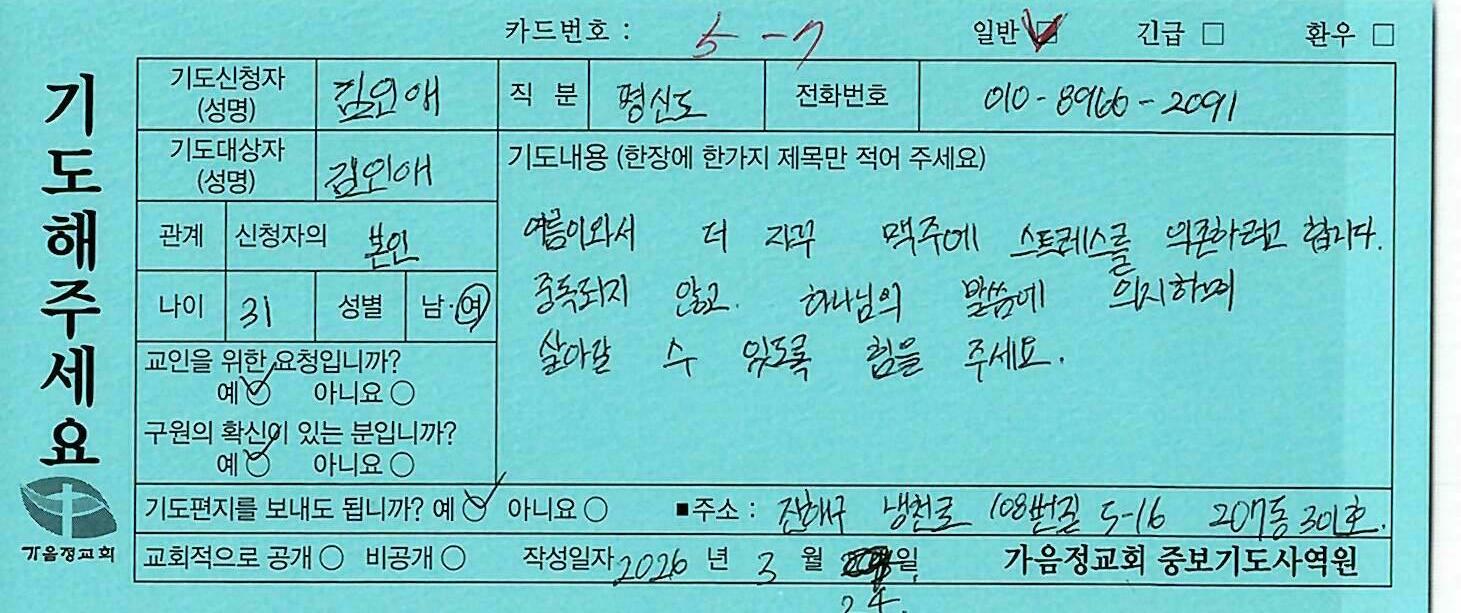 카드번호 : 5-7 일반 ☑ 긴급 □ 환우 □
기도해주세요
기도신청자 (성명) 김인애 직 분 평신도 전화번호 010-8966-2091
기도대상자 (성명) 김인애
기도내용 (한장에 한가지 제목만 적어 주세요)
관계 신청자의 본인
여름이와서 더 자꾸 맥주에 스트레스를 의존하려고 합니다.
나이 31 성별 남·여
중독되지 않고. 하나님의 말씀에 의지하며
살아갈 수 있도록 힘을 주세요.
교인을 위한 요청입니까?
예 ○ 아니요 ○
구원의 확신이 있는 분입니까?
예 ○ 아니요 ○
기도편지를 보내도 됩니까? 예 ○ 아니요 ○ ■주소 : 진해구 냉천로 108번길 5-16 207동 301호.
가음정교회
교회적으로 공개 ○ 비공개 ○ 작성일자 2026 년 3 월 일 가음정교회 중보기도사역원
24.